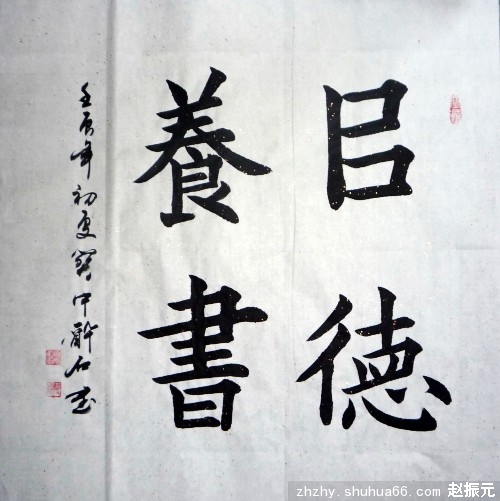 㠯德
養書
壬辰年初夏中醉石
zhzhy.shuhua66.com 赵振元